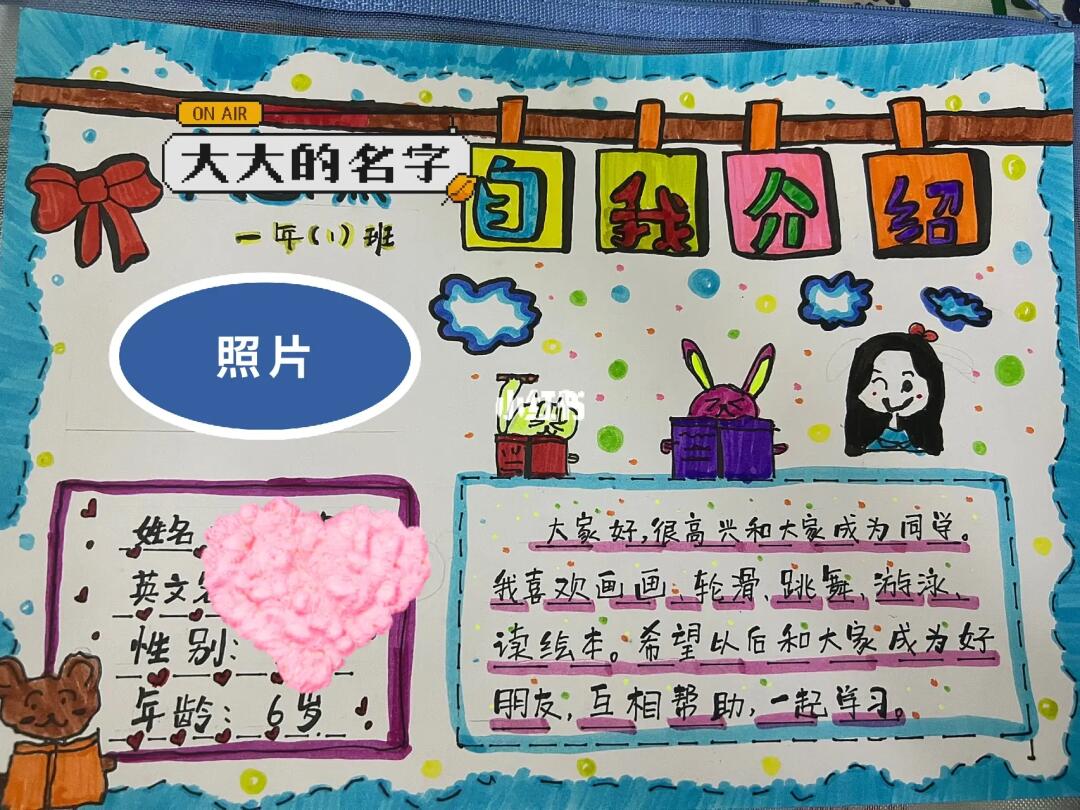 ON AIR
大大的名字
自我介绍
一年(1)班
照片
小红书
姓名
英文名
性别:
年龄: 6岁
大家好,很高兴和大家成为同学。
我喜欢画画、轮滑、跳舞、游泳、
读绘本。希望以后和大家成为好
朋友,互相帮助,一起学习。